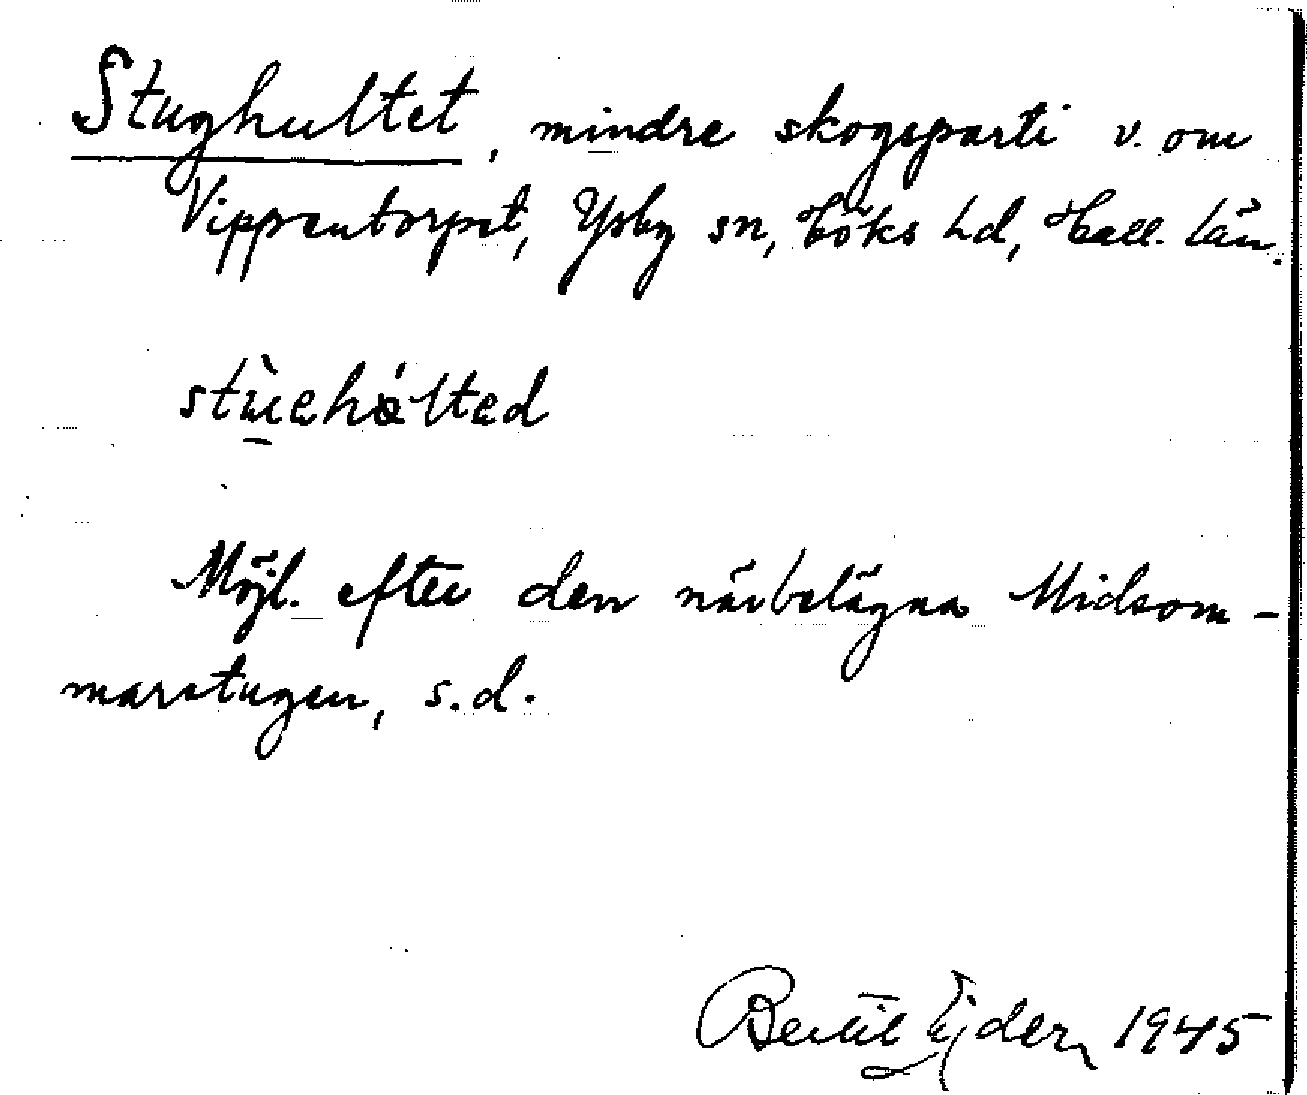 Stughultet, mindre skogsparti v. om
Vippentorpet, Ysby sn, Höks hd, Hall. län.
stùehǿlted
Möjl. efter den närbelägna Midsom-
marstugan, s.d.
Bertil Ejder 1945